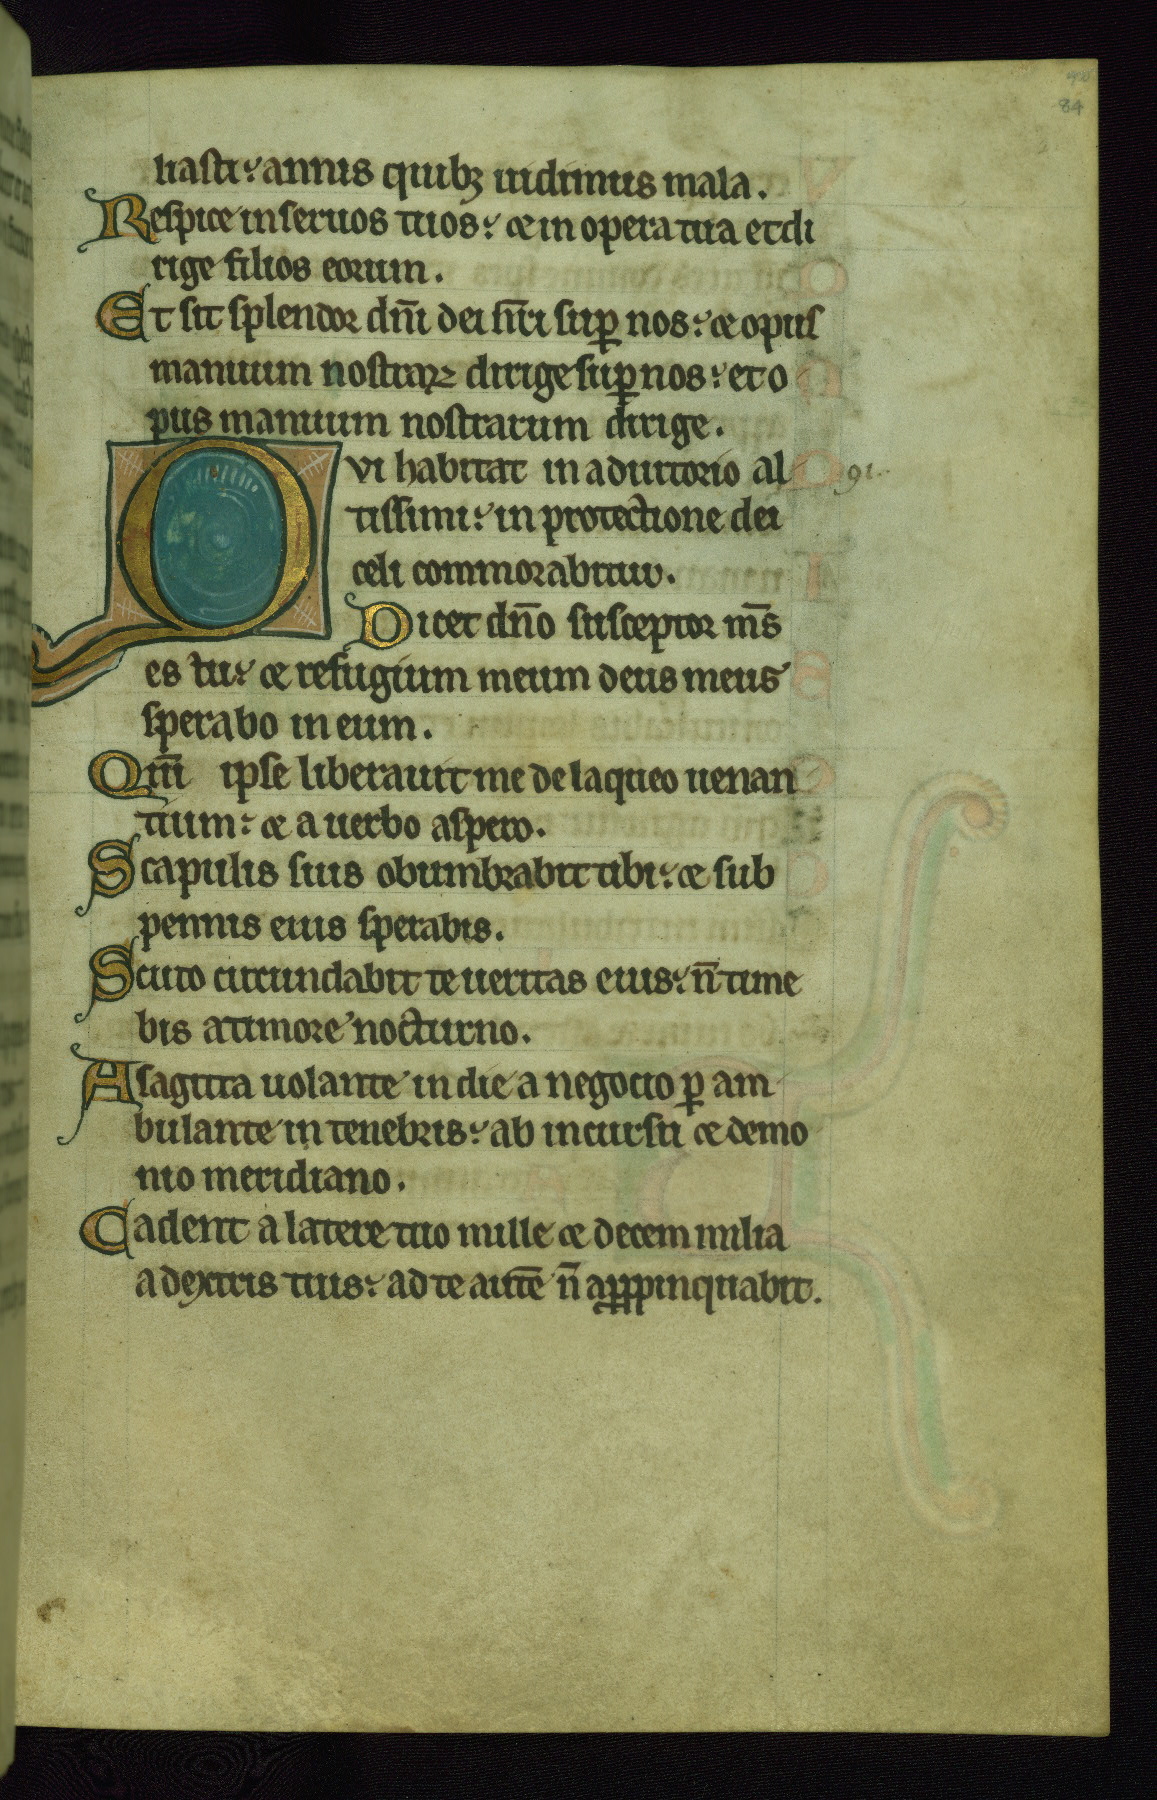 84
liasti: annis quibꝫ uidimus mala.
Respice in seruos tuos: & in opera tua et di
rige filios eorum.
Et sit splendor dn̄i dei nr̄i suꝑ nos: & opus
manuum nostraꝝ dirige suꝑ nos: et o
pus manuum nostrarum dirige.
Qvi habitat in adiutorio al 91.
tissimi: in protectione dei
celi commorabitur.
Dicet dn̄o susceptor ms̄
es tu: & refugium meum deus meus
sperabo in eum.
Qm̄ ipse liberauit me de laqueo uenan
tium: & a uerbo aspero.
Scapulis suis obumbrabit tibi: & sub
pennis eius sperabis.
Scuto circundabit te ueritas eius: n̄ time
bis a timore nocturno.
A sagitta uolante in die a negocio ꝑ am
bulante in tenebris: ab incursu & demo
nio meridiano.
Cadent a latere tuo mille & decem milia
a dextris tuis: ad te autē n̄ aꝓpinquabit.